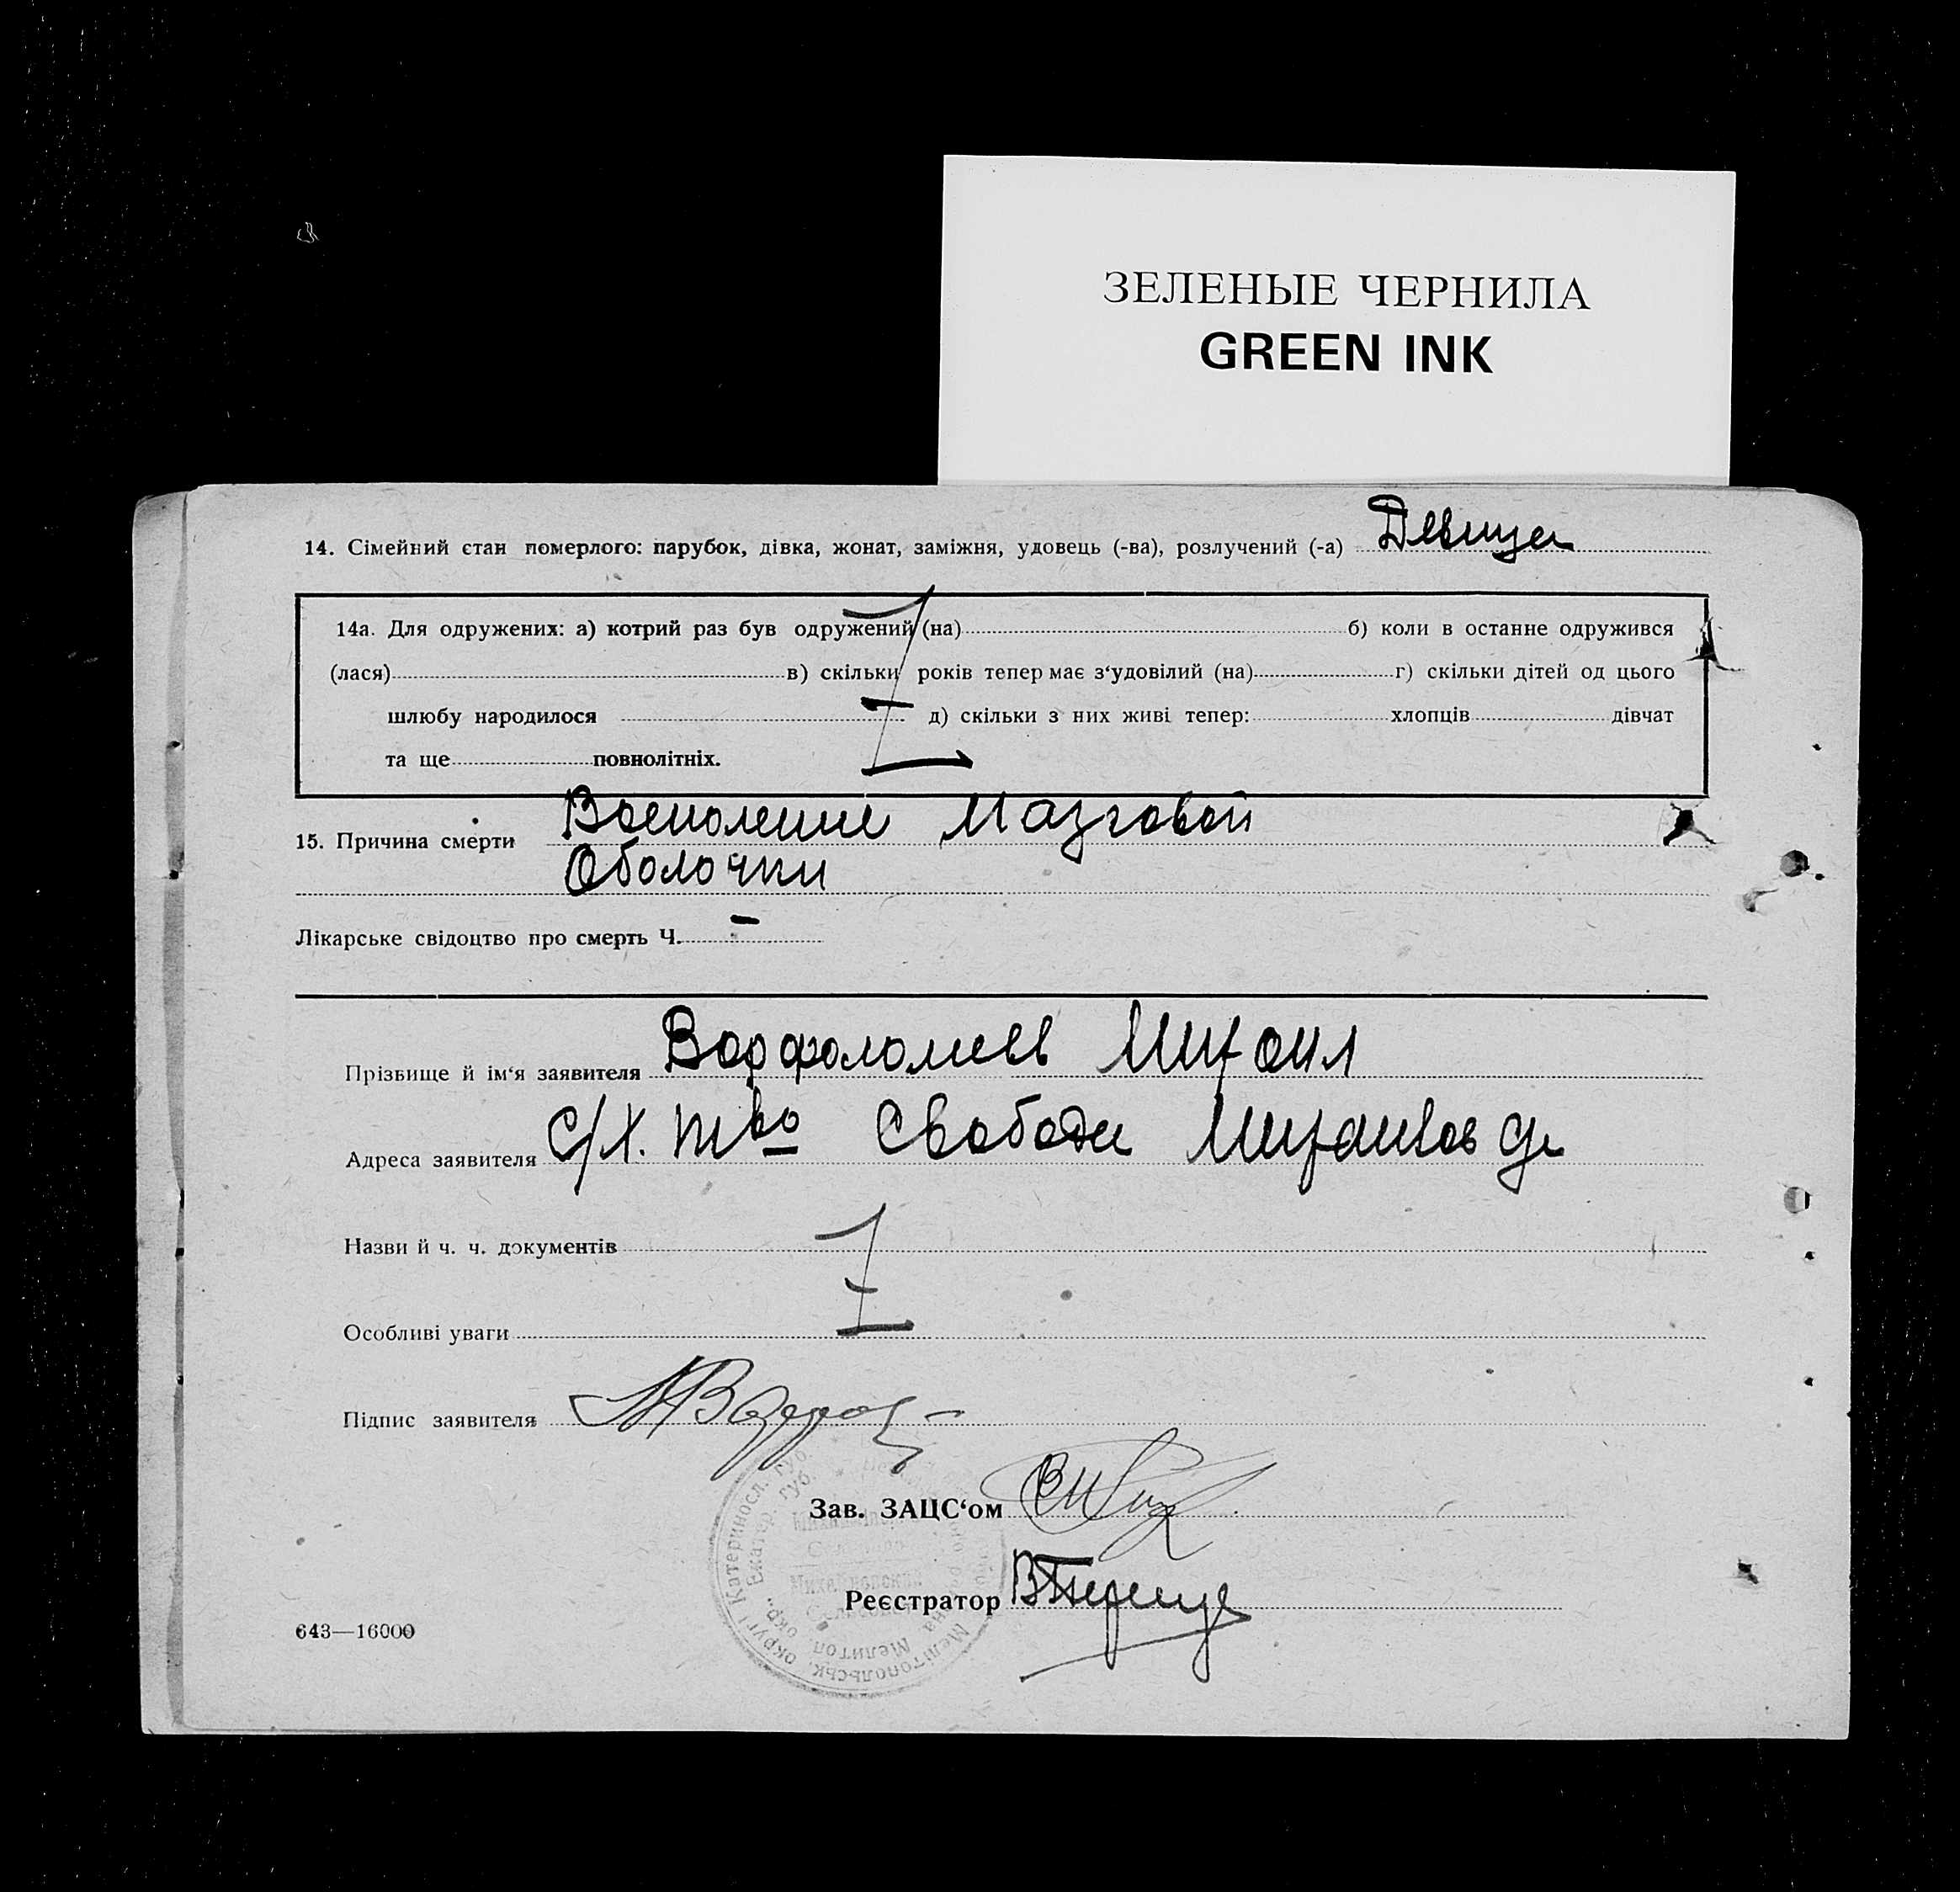 ЗЕЛЕНЫЕ ЧЕРНИЛА
GREEN INK
14. Сімейний стан померлого: парубок, дівка, жонат, заміжня, удовець (-ва), розлучений (-а) Девица
14а. Для одружених: а) котрий раз був одружений (на) б) коли в останне одружився
(лася) в) скільки років тепер має з‘удовілий (на) г) скільки дітей од цього
шлюбу народилося д) скільки з них живі тепер: хлопців дівчат
та ще повнолітніх.
15. Причина смерти Восполение Мазговой
Оболочки
Лікарське свідоцтво про смерть Ч. –
Прізвище й ім‘я заявителя Варфоломеев Михаил
Адреса заявителя с/х. тво Свобода
Назви й ч. ч. документів
Особливі уваги
Підпис заявителя
Зав. ЗАЦС‘ом
Реєстратор
643—16000